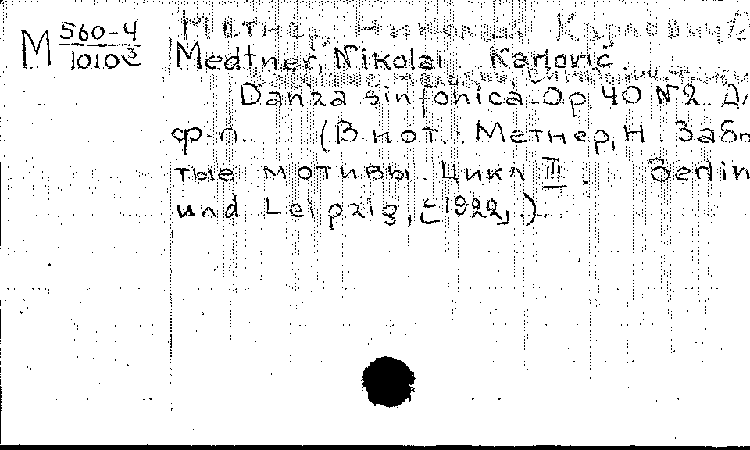 М 560-4
10108
Метнер, Николай Карлович
Medtner, Nikolai Karlovič.
Danza sinfonica. Op 40 № 2. Дл
ф-п. (В нот.: Метнер, Н. Забы
тые мотивы. Цикл III. Berlin
und Leipzig, [1922,].)